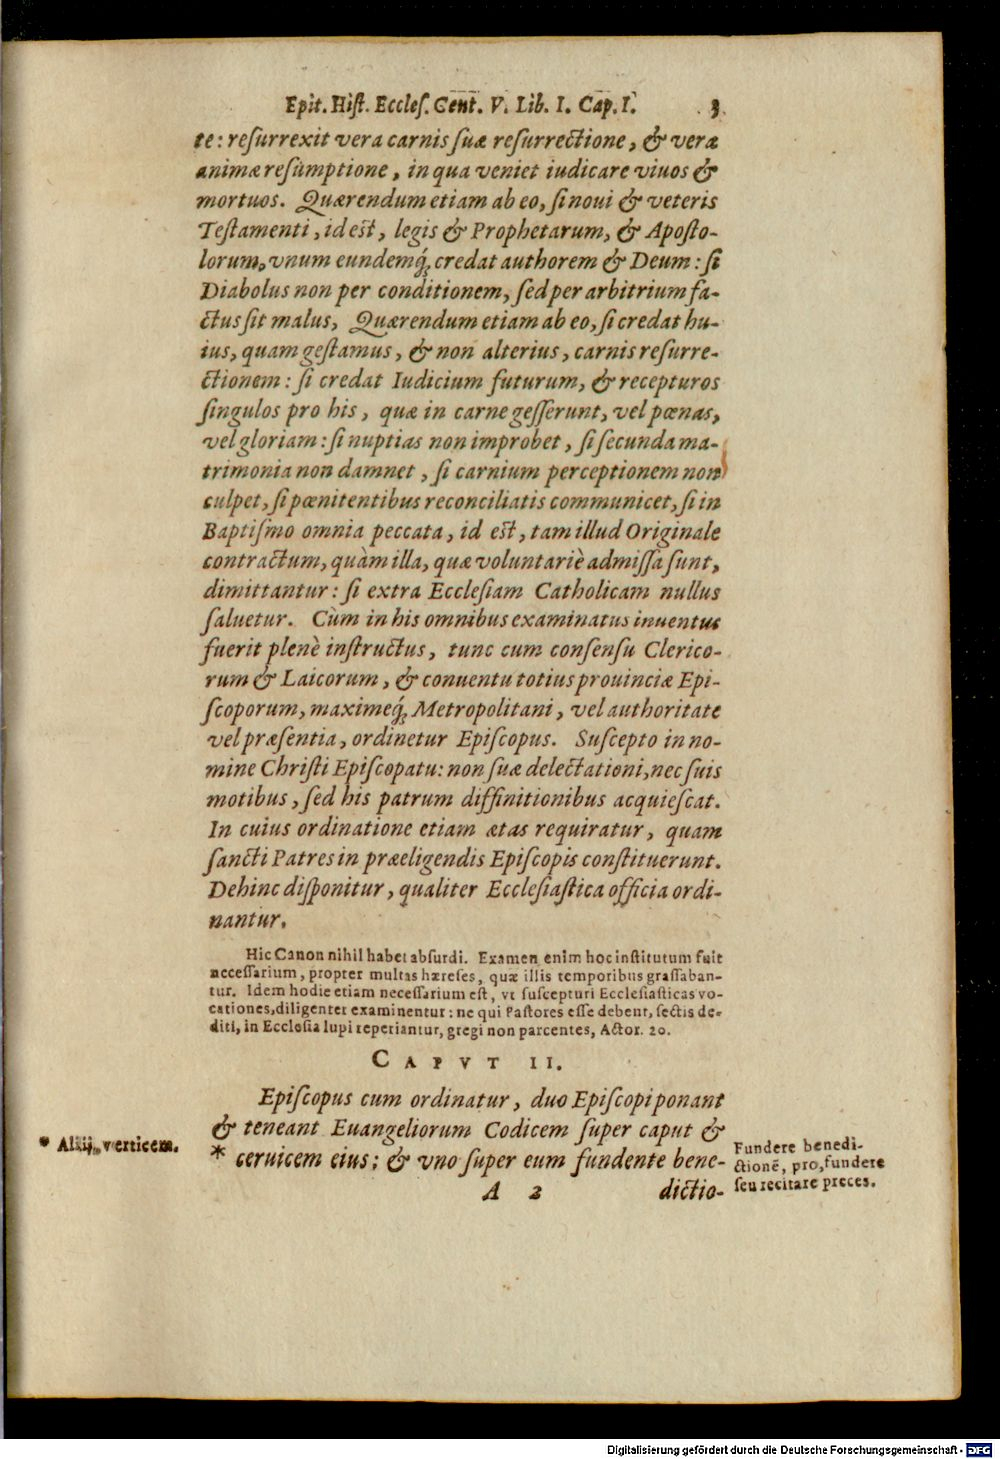 Epit. Hiſt. Eccleſ. Cent. V. Lib. I. Cap. I. 3
te: reſurrexit vera carnis ſuæ reſurrectione, & vera
animæ reſumptione, in qua veniet iudicare viuos &
mortuos. Quærendum etiam ab eo, ſi noui & veteris
Teſtamenti, id eſt, legis & Prophetarum, & Apoſto-
lorum, vnum eundemq́; credat authorem & Deum: ſi
Diabolus non per conditionem, ſed per arbitrium fa-
ctus ſit malus, Quærendum etiam ab eo, ſi credat hu-
ius, quam geſtamus, & non alterius, carnis reſurre-
ctionem: ſi credat Iudicium futurum, & recepturos
ſingulos pro his, quæ in carne geſſerunt, vel pœnas,
vel gloriam: ſi nuptias non improbet, ſi ſecunda ma-
trimonia non damnet, ſi carnium perceptionem non
culpet, ſi pœnitentibus reconciliatis communicet, ſi in
Baptiſmo omnia peccata, id eſt, tam illud Originale
contractum, quàm illa, quæ voluntariè admiſſa ſunt,
dimittantur: ſi extra Eccleſiam Catholicam nullus
ſaluetur. Cùm in his omnibus examinatus inuentus
fuerit plenè inſtructus, tunc cum conſenſu Clerico-
rum & Laicorum, & conuentu totius prouinciæ Epi-
ſcoporum, maximeq́; Metropolitani, vel authoritate
vel præſentia, ordinetur Epiſcopus. Suſcepto in no-
mine Chriſti Epiſcopatu: non ſuæ delectationi, nec ſuis
motibus, ſed his patrum diffinitionibus acquieſcat.
In cuius ordinatione etiam ætas requiratur, quam
ſancti Patres in præeligendis Epiſcopis conſtituerunt.
Dehinc diſponitur, qualiter Eccleſiaſtica officia ordi-
nantur.
Hic Canon nihil habet abſurdi. Examen enim hoc inſtitutum fuit
neceſſarium, propter multas hæreſes, quæ illis temporibus graſſaban-
tur. Idem hodie etiam neceſſarium eſt, vt ſuſcepturi Eccleſiaſticas vo-
cationes, diligenter examinentur: ne qui Paſtores eſſe debent, ſectis de-
diti, in Eccleſia lupi reperiantur, gregi non parcentes, Actor. 20.
CAPVT II.
Epiſcopus cum ordinatur, duo Epiſcopi ponant
& teneant Euangeliorum Codicem ſuper caput &
* ceruicem eius; & vno ſuper eum fundente bene-
* Alij, verticem.
Fundere benedi-
ctionẽ, pro, fundere
ſeu recitare preces.
A 2 dictio-
Digitalisierung gefördert durch die Deutsche Forschungsgemeinschaft - DFG